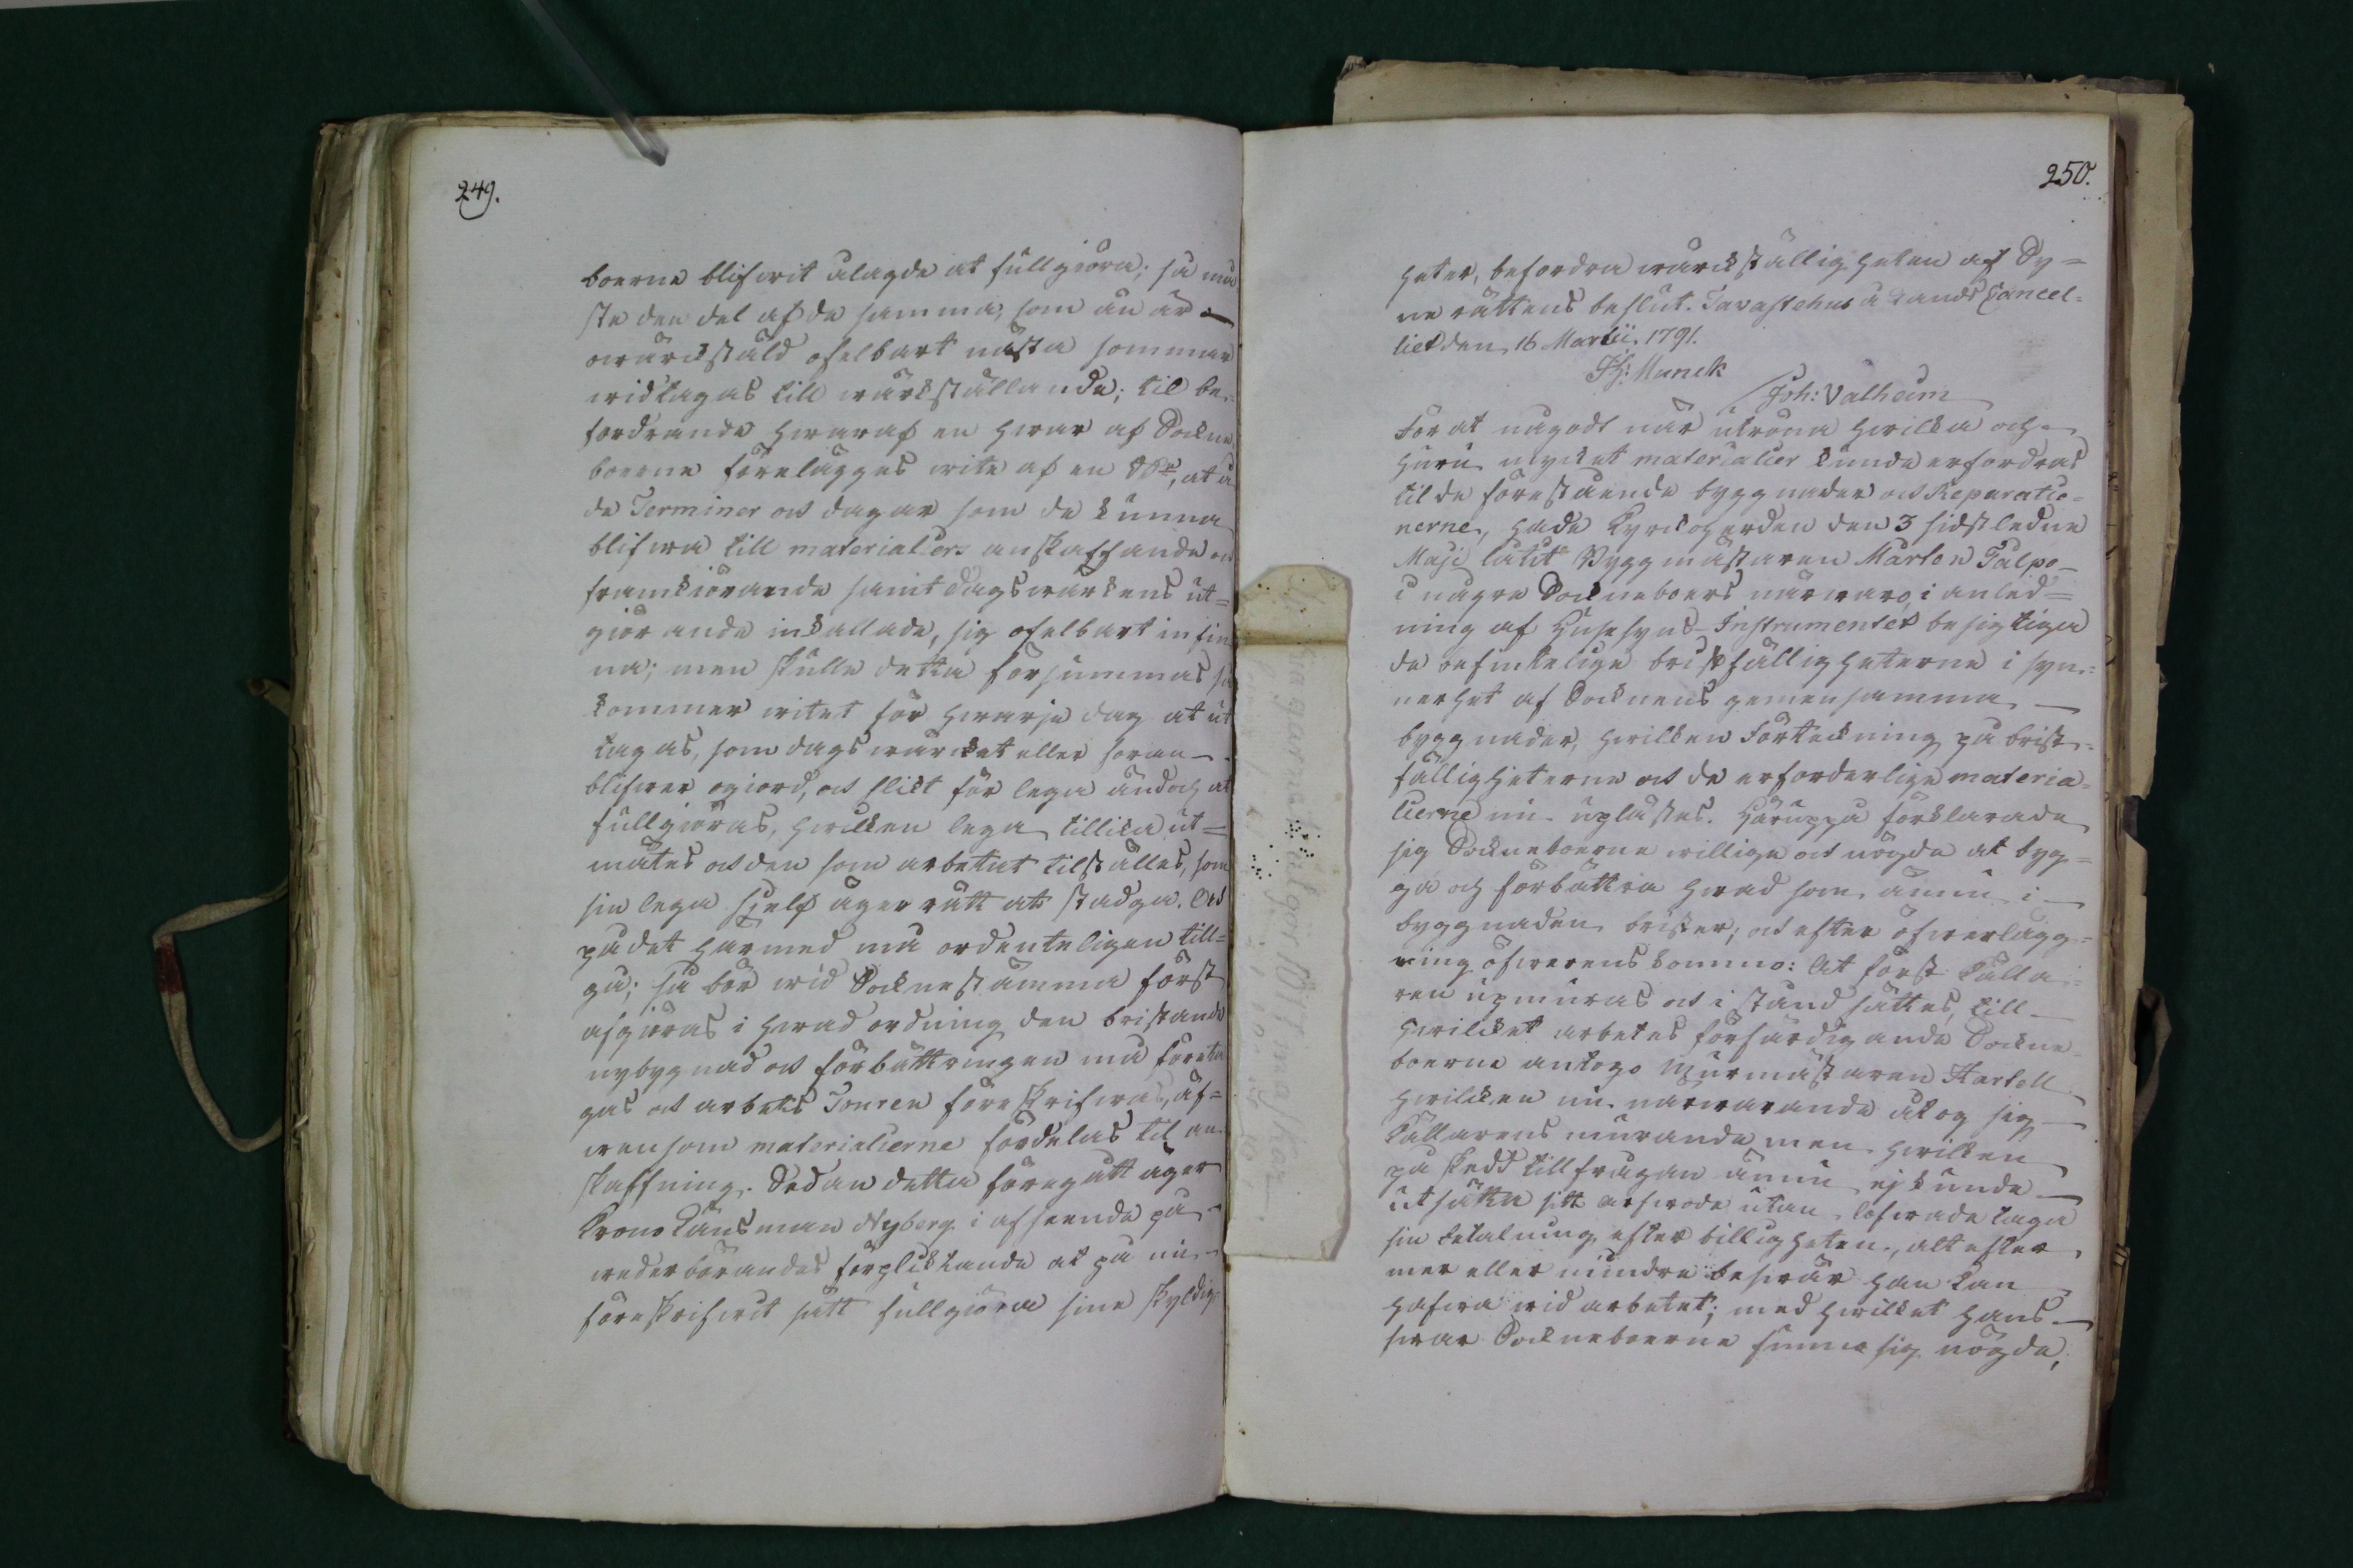 249.
boerne blifwit ålagde at fullgiöra; så må
ste den del af de samma, som än är
owärckstäld ofelbart nästa sommar
widtagas till wärckställande; til be-
fordrande hwaraf en hwar af Sockne
boerne förelägges wite af en Rd, at å
de Terminer och dagar som de kunna
blifwa till materialiers anskaffande och
framkiörande samt dagswärkens ut-
giörande inkallade, sig ofelbart infin
na; men skulle detta försummas så
kommer witet för hwarje dag at ut
tagas, som dagswärcket eller foran
blifwer ogiord, och slikt för lega ändoch at
fullgiöras, hwilken lega tillika ut-
mätes och den som arbetat tilställes, som
sin lega sjelf äger rätt at stadga. Och
på det härmed må ordenteligen till-
gå; så bör wid Socknestämma först
afgiöras i hwad ordning den bristande
nybygnad och förbättringen må företa
gas och arbets Touren föreskrifwas, äf-
wensom materialierne fördelas til an-
skaffning. Sedan detta föregått äger
Krono Länsman Nyberg i afseende på
wederbörandes förplicktande at på nu
föreskrifwit sätt fullgiöra sine skyldig
250.
heter, befordra wärckställigheten af Sy-
ne rättens beslut. Tavastehus å Lands Cancel-
liet den 16 Martii 1791.
Hj: Munck
Joh: Valheim
För at någodt när utröna hwilka och
huru mycket materialier kunde erfordras
til de förestående byggnader och Reparatio-
nerne, hade Kyrckoherden den 3 sidstledne
Maji låtit Byggmästaren Mårten Talpo
i någre Sockneboers närwaro, i anled-
ning af Husesyns-Instrumentet besigtiga
de befintelige bristfälligheterne i syn-
nerhet af Socknens gemensamma
byggnader, hwilken Förteckning på brist-
fälligheterne och de erforderlige materia-
lierne nu uplästes. Häruppå förklarade
sig Sockneboerne willige och nögde at byg-
ga och förbättra hwad som ännu i
byggnaden brister, och efter öfwerlägg-
ning öfwerenskommo: At först Källa-
ren upmuras och i stånd sättes, till
hwilcket arbetes förfärdigande Sockne-
boerne antogo Murmästaren Hartell
hwilcken nu närwarande åtog sig
Källarens murande men hwilken
på skedd tillfrågan ännu ej kunde
utsätta sitt arfwode utan lofwade taga
sin betalning efter billigheten, alt efter
mer eller mindre beswär han kan
hafwa wid arbetet; med hwilcket hans
swar Sockneboerne funno sig nögde,